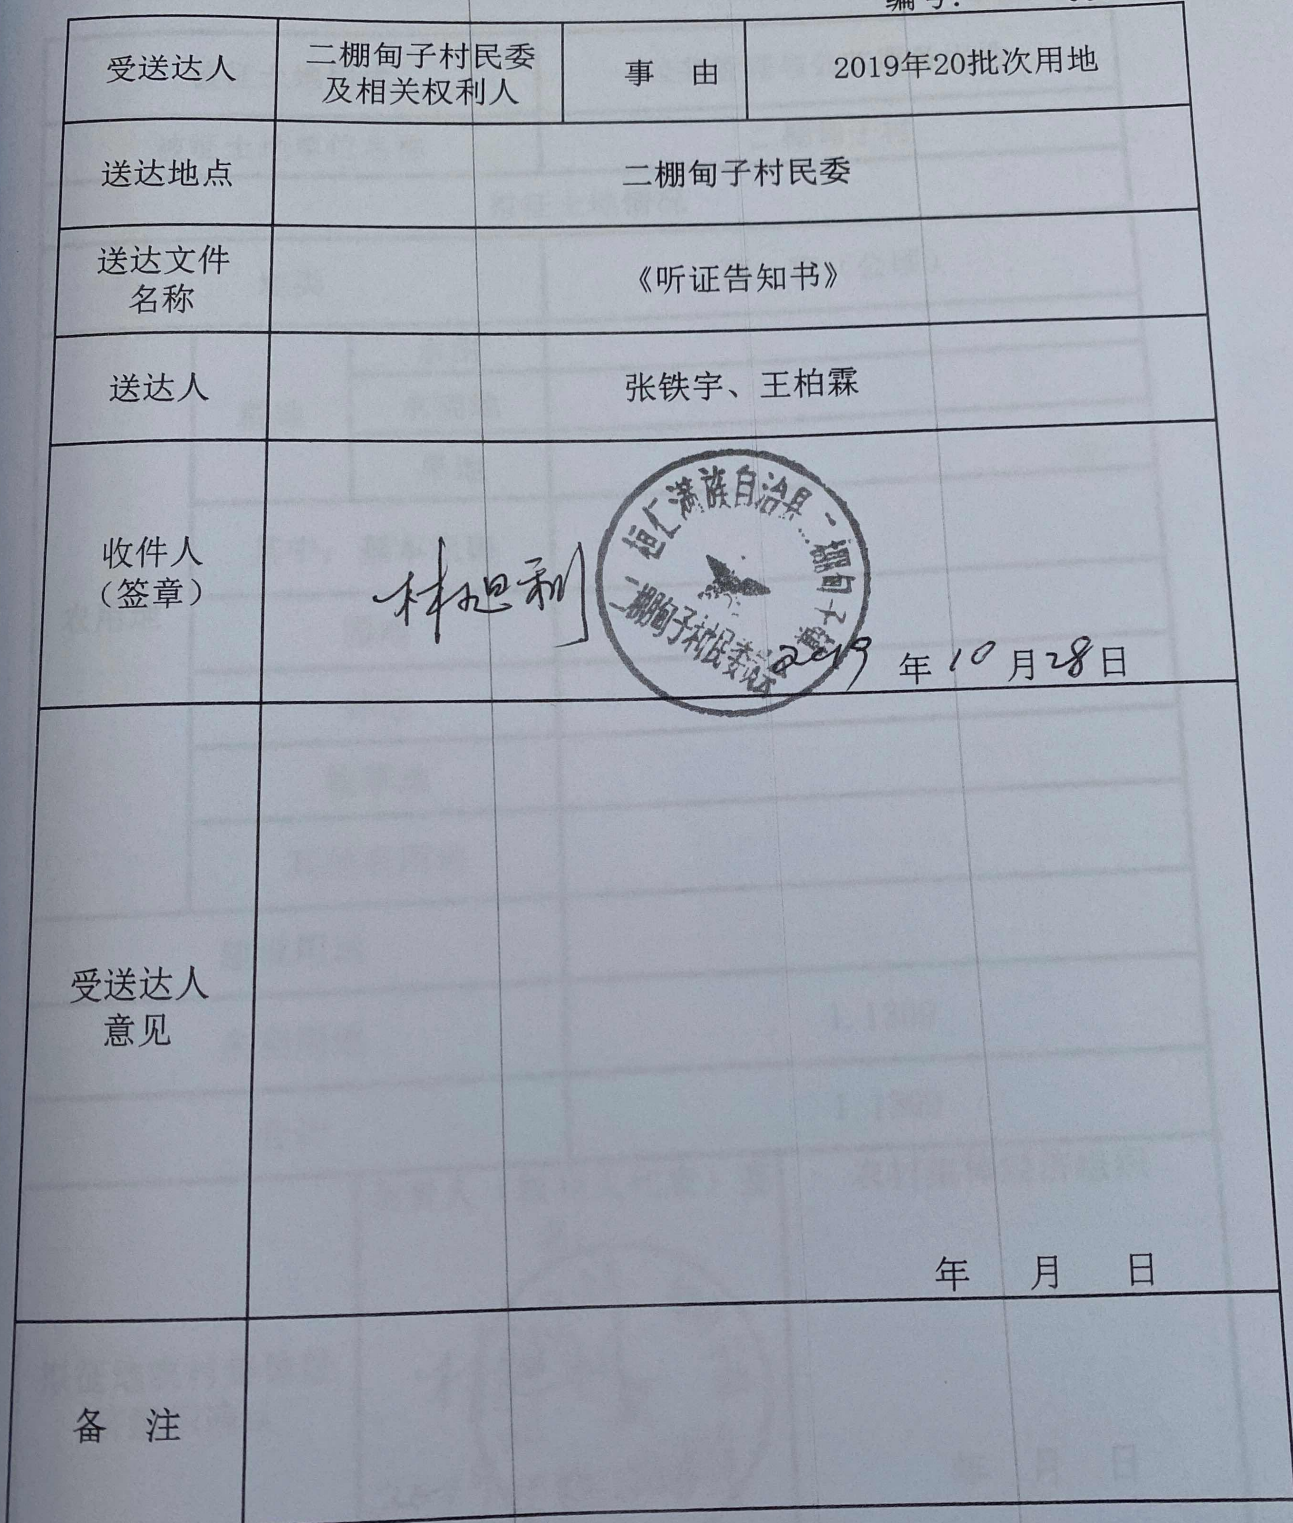 编号:
受送达人
二棚甸子村民委
及相关权利人
事 由
2019年20批次用地
送达地点
二棚甸子村民委
送达文件
名称
《听证告知书》
送达人
张铁宇、王柏霖
收件人
（签章）
林旭利
桓仁满族自治县二棚甸子镇
二棚甸子村民委员会
2019 年 10 月 28 日
受送达人
意见
年 月 日
备 注